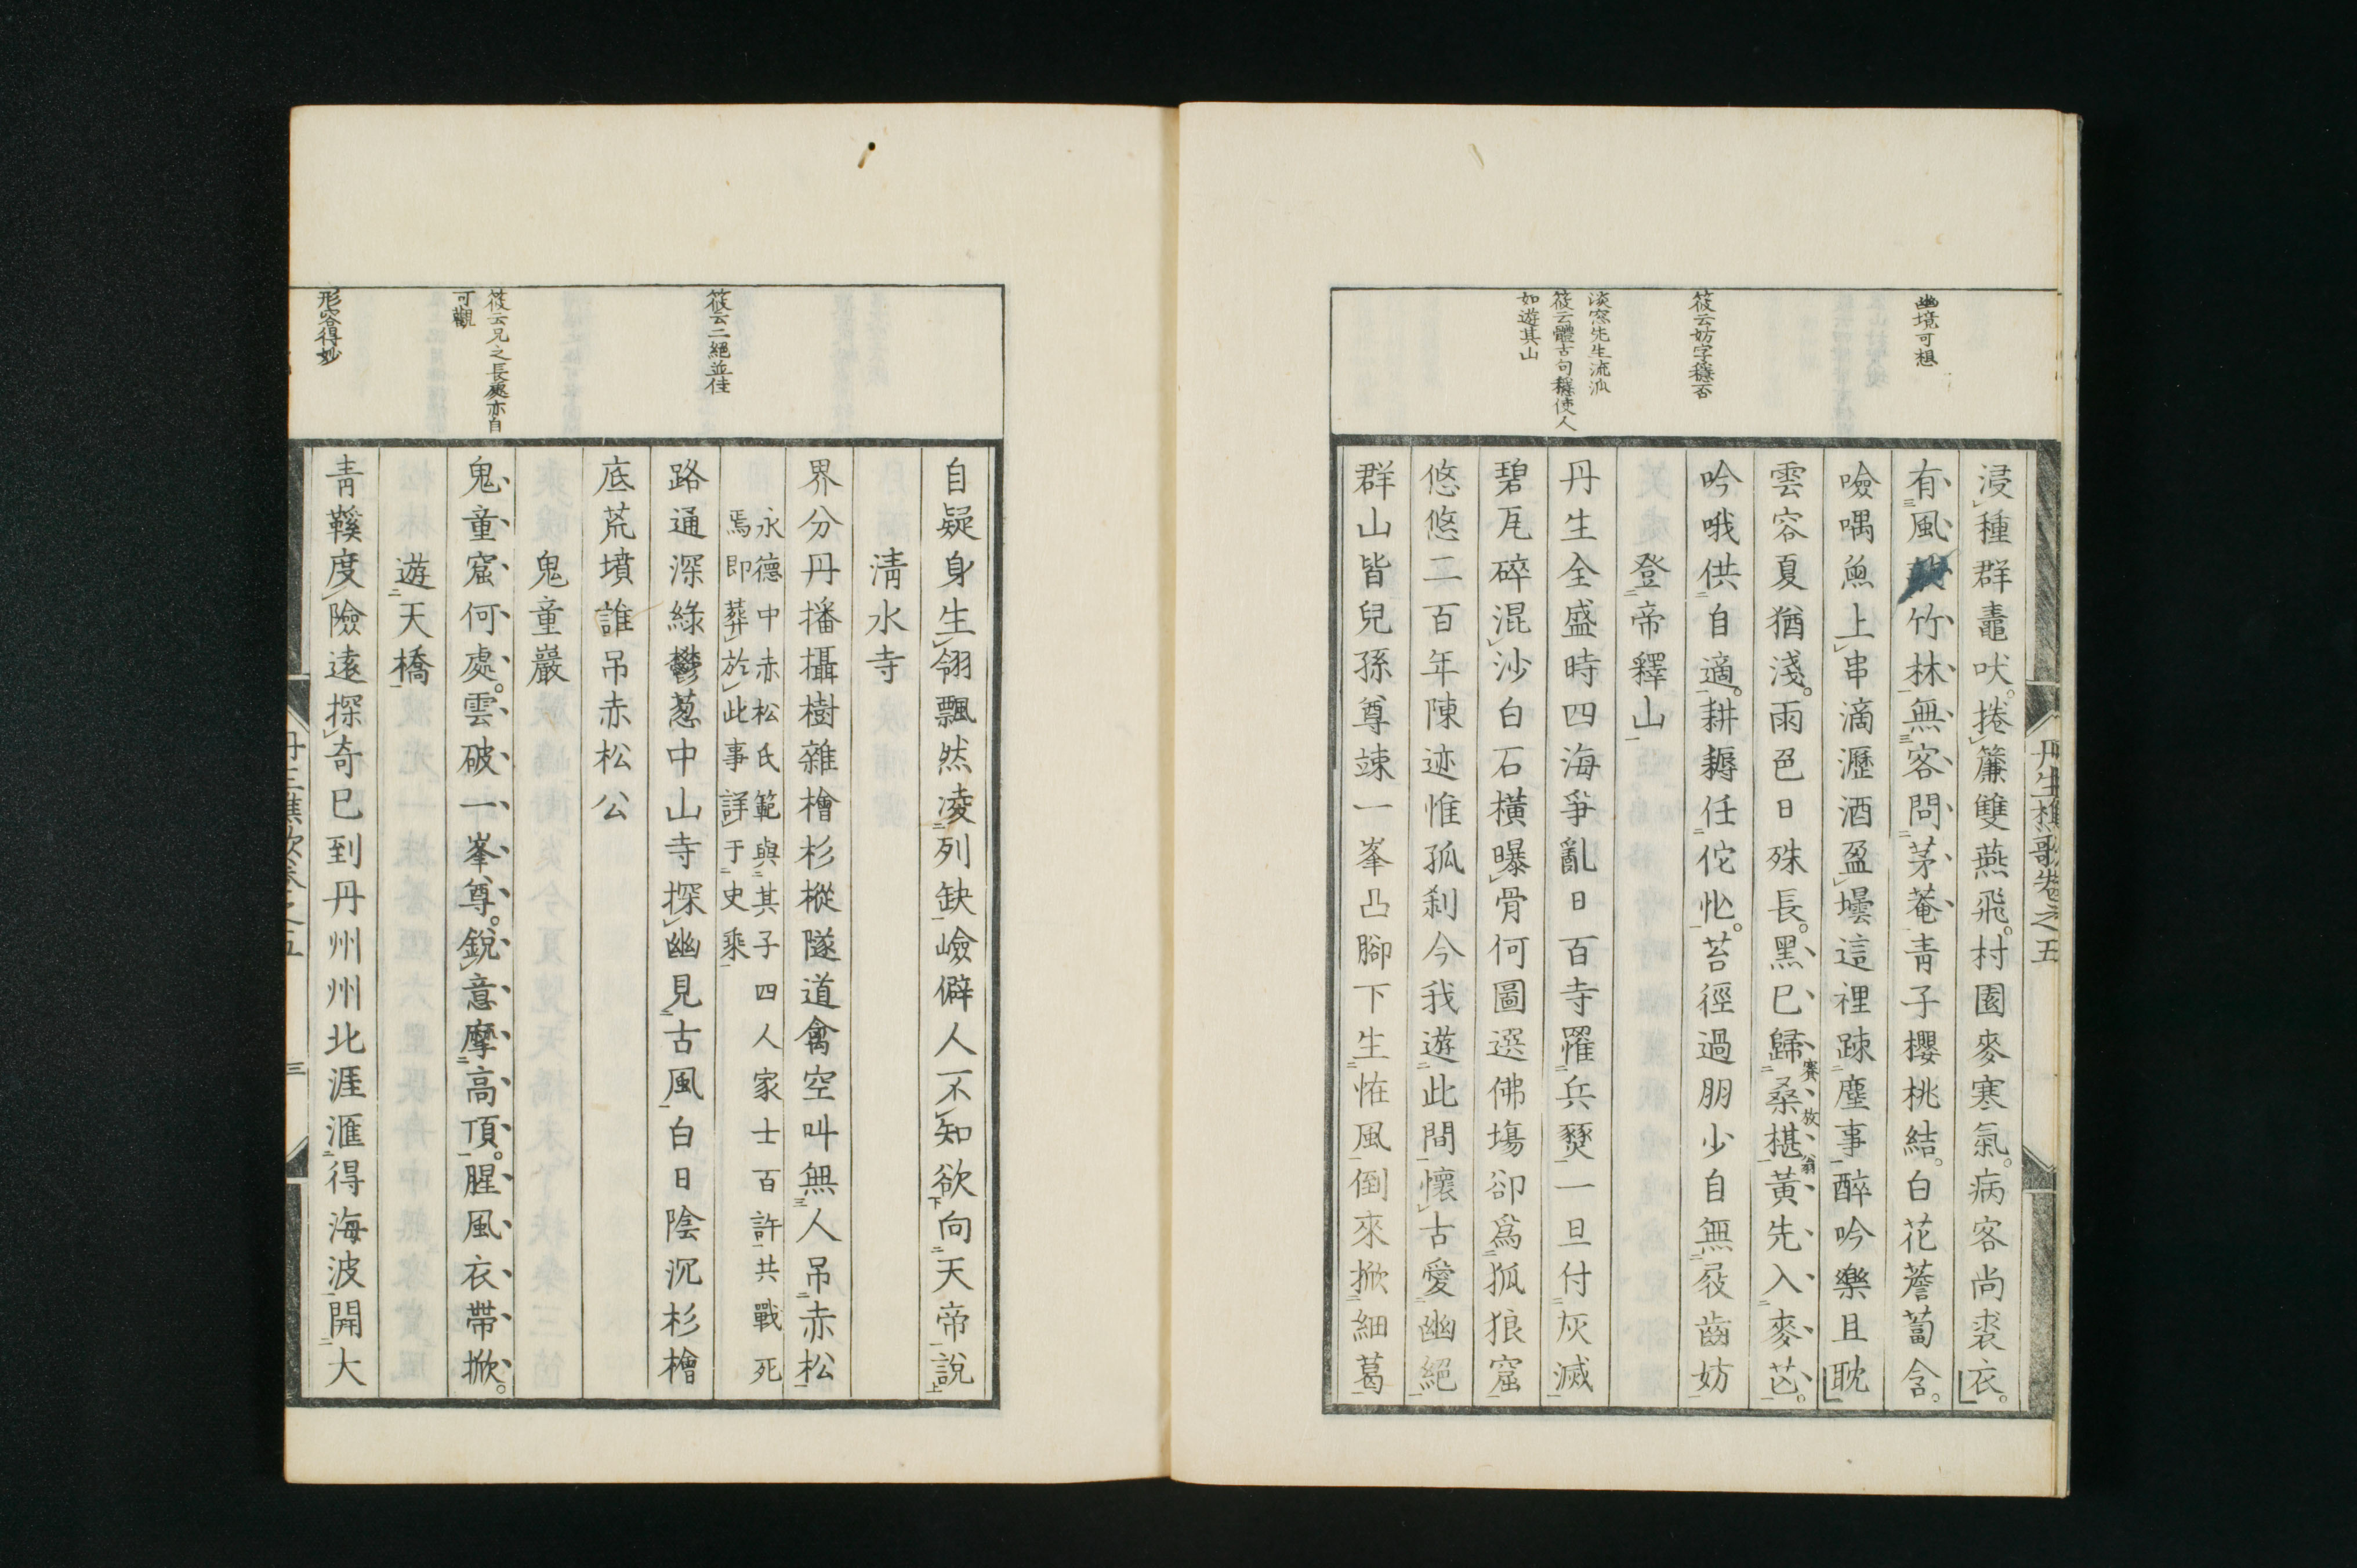 丹生樵歌卷之五
幽境可想
筱云妨字穩否
淡窓先生流派
筱云體古句穩使人
如遊其山
浸種群鼃吠捲簾雙燕飛村園麥寒氣病客尚裘衣
有風竹林無客問茅菴青子櫻桃結白花薝蔔含
噞喁魚上串滴瀝酒盈壜這裡疎塵事醉吟樂且耽
雲容夏猶淺雨色日殊長黑巳歸桑椹黃先入麥芒
賽放翁
吟哦供自適耕耨任佗忙苔徑過朋少自無屐齒妨
登帝釋山
丹生全盛時四海爭亂日百寺罹兵燹一旦付灰滅
碧瓦碎混沙白石橫曝骨何圖選佛場卻爲狐狼窟
悠悠二百年陳迹惟孤刹今我遊此間懷古愛幽絕
群山皆兒孫尊竦一峯凸腳下生恠風倒來掀細葛
筱云二絕並佳
筱云兄之長處亦自
可觀
形容得妙
自疑身生翎飄然凌列缺嶮僻人不知欲向天帝說
清水寺
界分丹播攝樹雜檜杉樅隧道禽空叫無人吊赤松
永德中赤松氏範與其子四人家士百許共戰死
焉即葬於此事詳于史乘
路通深綠鬱葱中山寺探幽見古風白日陰沉杉檜
底荒墳誰吊赤松公
鬼童巖
鬼童窟何處雲破一峯尊銳意摩高頂腥風衣帶掀
遊天橋
青鞵度險遠探奇巳到丹州州北涯滙得海波開大
丹生樵歌卷之五
三